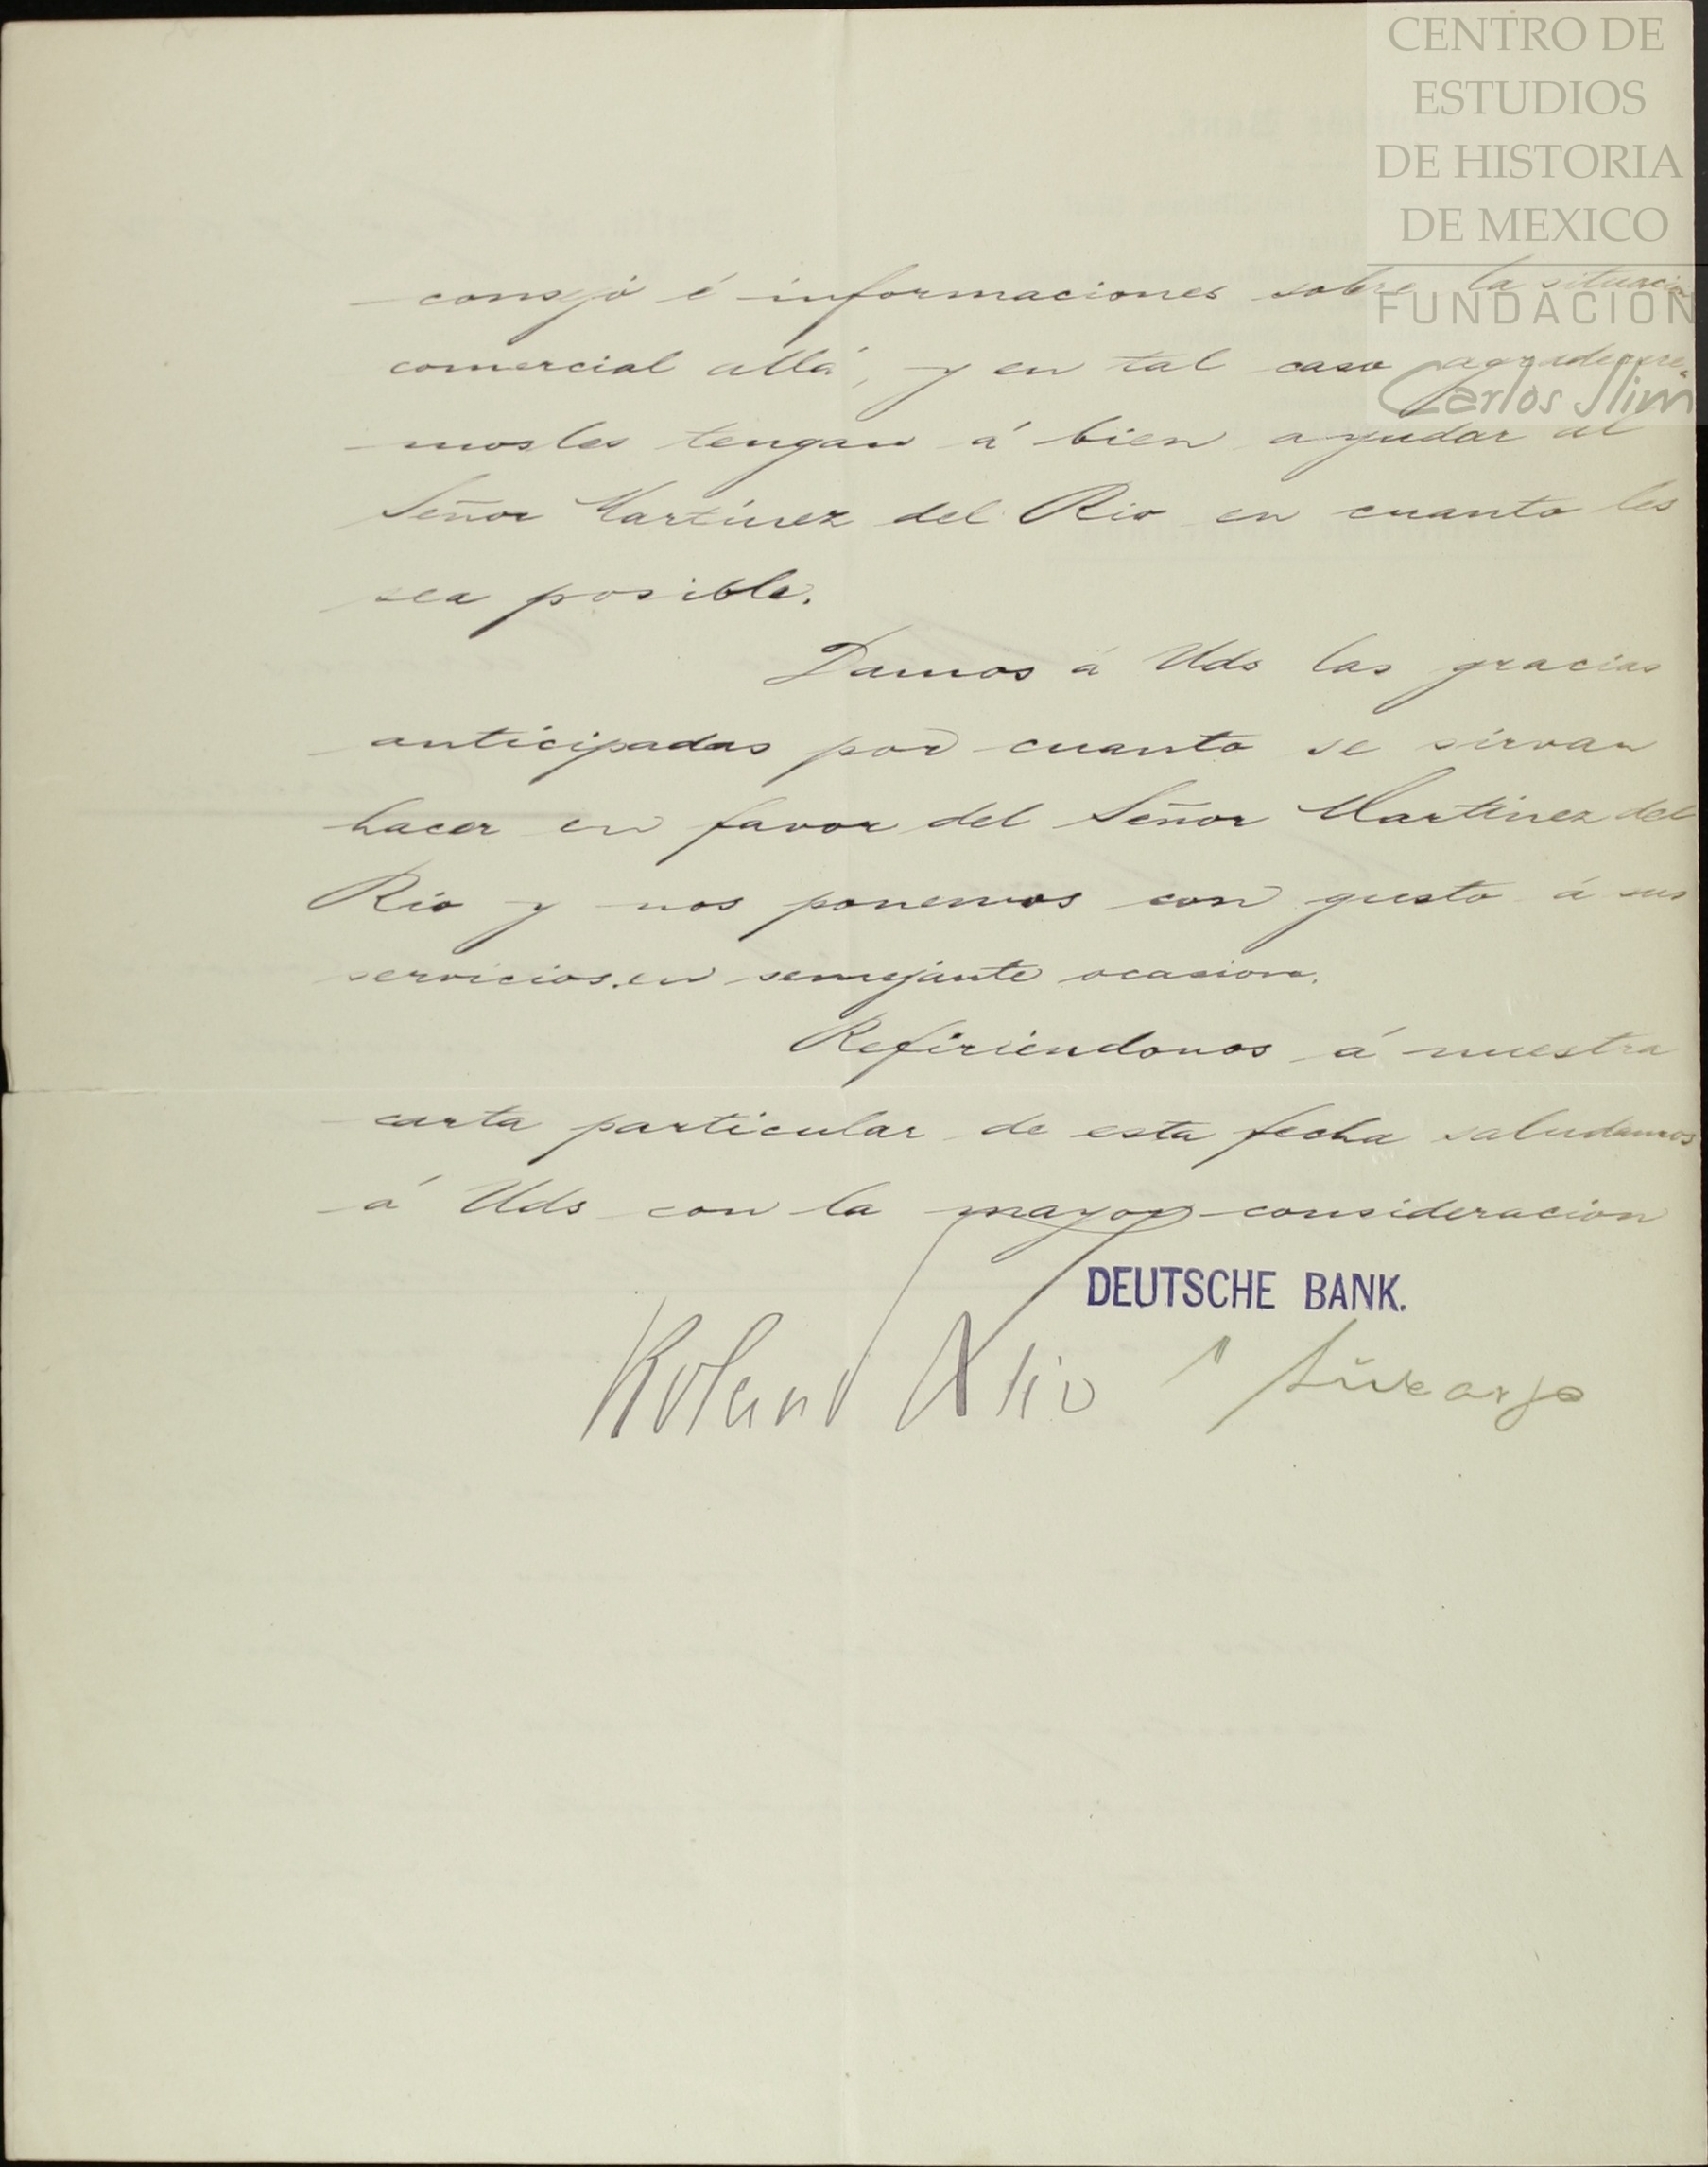 CENTRO DE
ESTUDIOS
DE HISTORIA
DE MEXICO
FUNDACION
Carlos Slim
consejo é informaciones sobre la situacion
comercial allá, y en tal caso agradecere-
mosles tengan á bien ayudar al
Señor Martinez del Rio en cuanto les
sea posible.
Damos á Uds las gracias
anticipadas por cuanto se sirvan
hacer en favor del Señor Martinez del
Rio y nos ponemos con gusto á sus
servicios en semejante ocasion.
Refiriéndonos á nuestra
carta particular de esta fecha saludamos
á Uds con la mayor consideracion
DEUTSCHE BANK.